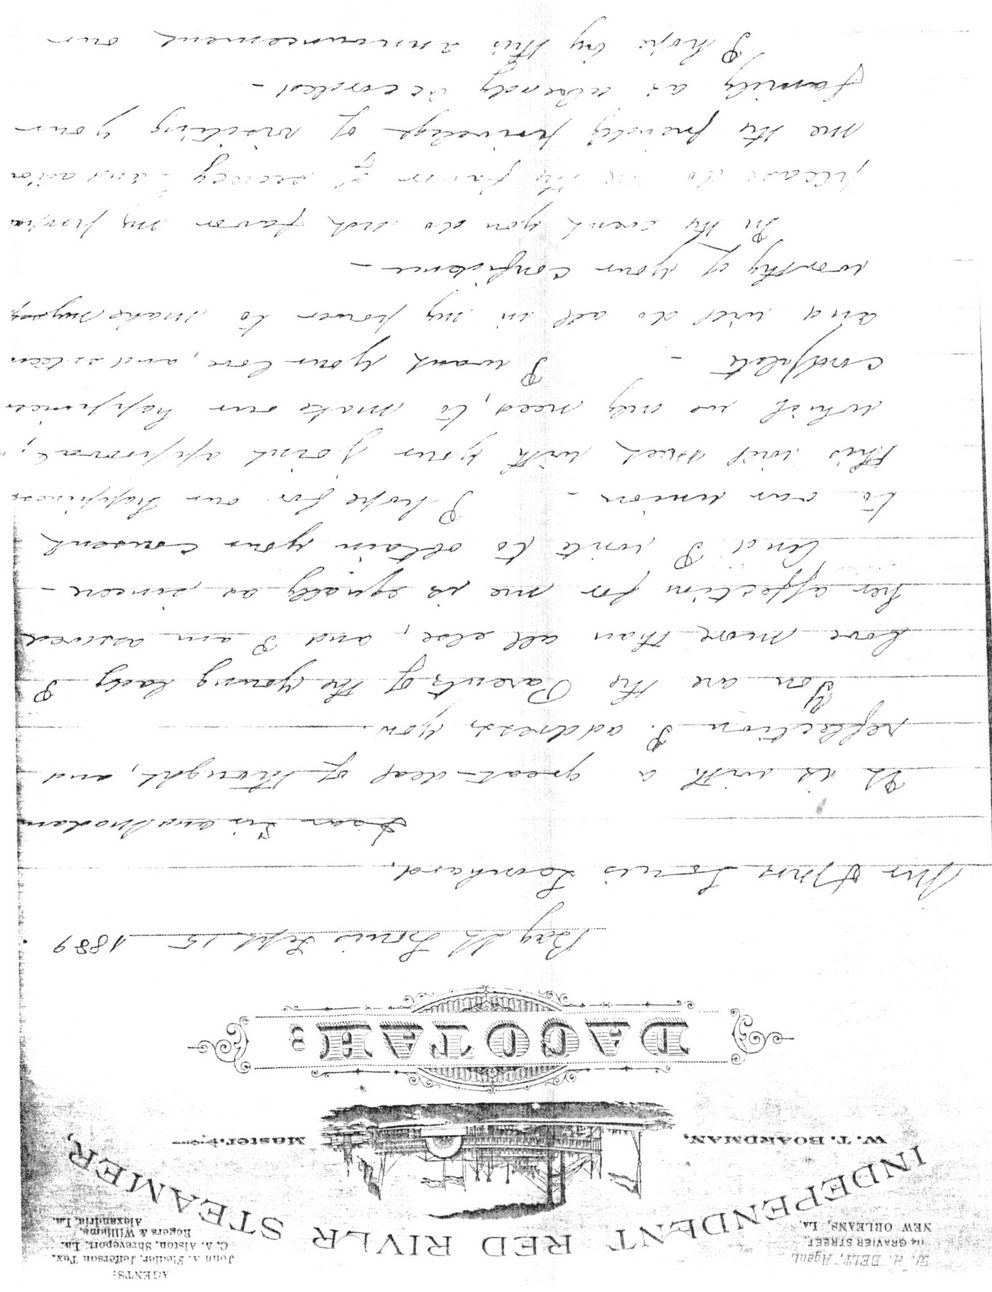 W. H. BELT, Agent.
114 GRAVIER STREET,
NEW ORLEANS, La.
AGENTS:
John A. Fiedler, Jefferson Tex.
C. A. Alston, Shreveport, La.
Rogers & Williams,
Alexandria, La.
INDEPENDENT RED RIVER STEAMER
W. T. BOARDMAN, Master.
DACOTAH:
Bay St Louis Sept. 15 1889.
Mr & Mrs Louis Leonhard,
Dear Sir and Madam
It is with a great deal of thought, and
reflection I address you.
You are the Parents of the young lady I
love more than all else, and I am assured
her affection for me is equally as sincere -
And I write to obtain your consent
to our union - I hope for our happiness
this will meet with your joint approval,
which we only need, to make our happiness
complete - I want your love, and esteem
and will do all in my power to make myself
worthy of your confidence -
In the event you do not favor my
please do me the favor of secrecy &
me the friendly privilege of visiting your
family as already accorded -
I hope by this announcement our